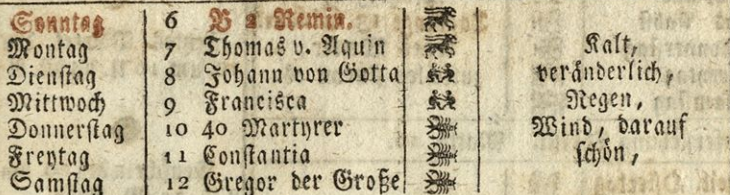 Sonntag 6 B 2 Remin.
Montag 7 Thomas v. Aquin Kalt,
Dienstag 8 Johann von Gotta veränderlich,
Mittwoch 9 Francisca Regen,
Donnerstag 10 40 Martyrer Wind, darauf
Freytag 11 Constantia schön,
Samstag 12 Gregor der Große